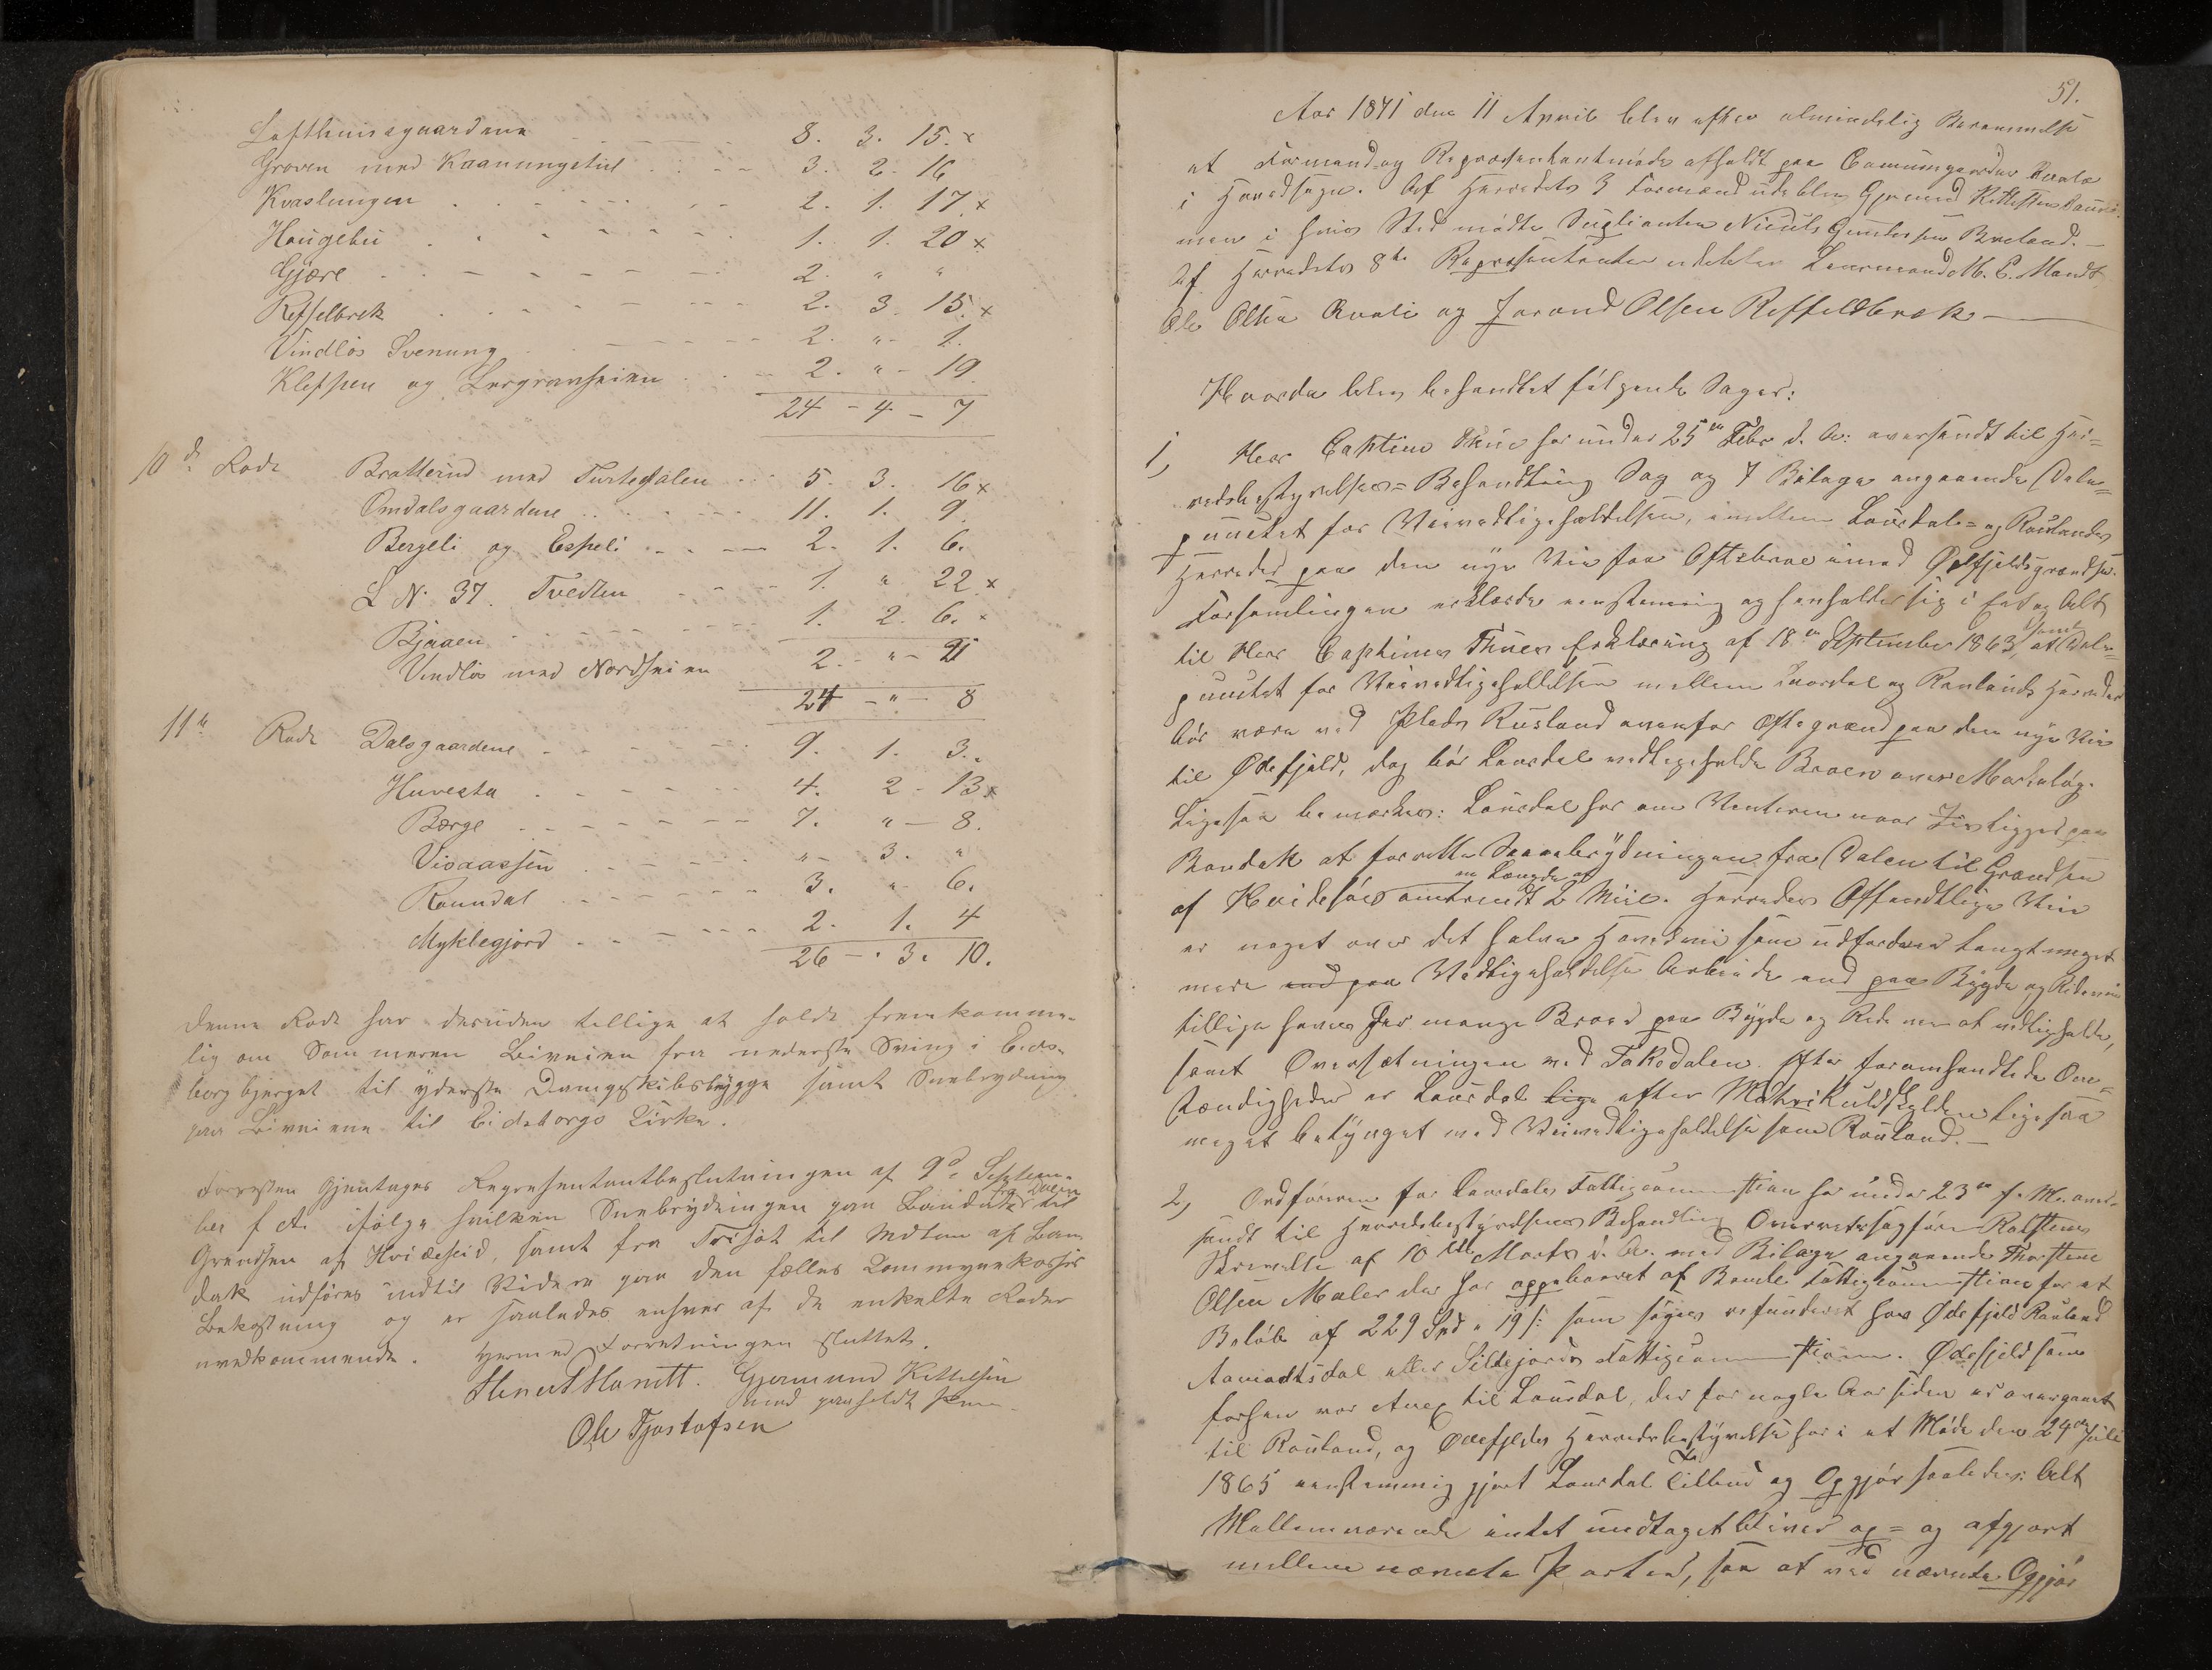 Lofthuusgaardene 8. 3. 15. x
Groven med Kaanungstul 3. 2. 16
Kvaslungen 2. 1. 17. x
Haugebu 1. 1. 20 x
Gjære 2. " "
Reffelbrek 2. 3. 15. x
Vindlös Svenung 2. " - 1.
Kleppen og 2. " - 19
24 - 4 - 7
10de Rode Bratterud med Turtedalen 5. 3. 16 x
Omdalsgaardene 11. 1. 9
Bergeli og Espeli 2. 1. 6.
L N. 37. Tvedten 1. " 22 x
Bjaaen 1. 2. 6. x
Vindlös med Nordheien 2. - " - 21
24 - " - 8
11te Rode Dalsgaardene 9. 1. 3.
Huvesta 4. 2 - 13 x
Børge 7. " - 8.
Visaassen " - 3. "
Raundal 3. " 6.
Myklegjord 2. 1. 4
26 - . 3. 10.
Denne Rode har desuden tillige at holde fremkomme-
lig om Sommeren Biveien fra nederste Sving i Eids-
borgbjerget til yderste Dampskibsbrygge samt Snebrydning
paa Biveiene til Eidsborgs Kirke.
Forresten gjentages Repræsentantbeslutningen af 9de Septem-
ber f. A. ifølge hvilken Snebrydningen paa Bandak fra Dalen til
Grændsen af Hvideseid, samt fra Trisæt til Midten af Ban-
dak udføres indtil Videre paa den fælles Kommunekasses
Bekostning og er saaledes enhver af de enkelte Roder
uvedkommende. Hermed Forretningen sluttet.
Gjermund Kittelsen
med paaholdt Pen
Ole Tjostofsen
51.
Aar 1871 den 11 April blev efter almindelig Berammelse
et Formand- og Repræsentantmøde afholdt paa Communegaarden
i Hovedsogn. Af Herredets 3 Formænd udeblev Gjermund Kittelsen
men i hvis Sted mødte Suplianten Niculs Gundersen Breland. —
Af Herredets 8te Repræsentanter udeblev Lensmand M. E. Mandt
Ole Olsen Kvali og Jorand Olsen Reffeldbrek —
Hvorda blev behandlet følgende Sager:
1, Herr Captein Thue har under 25de Febr. d. A. oversendt til Her-
redsbestyrelsens Behandling Sag og 7 Bilage angaaende Dele-
punctet for Veivedligeholdelsen, imellem Laurdals- og Raulands
Herreder paa den nye Vei fra Oftebroe imod Øifjeldsgrændse.
Forsamlingen erklærede eenstemmig og henholder sig i Et og Alt
til Herr Capteinen Thues Erklæring af 18de September 1863, samt at Dele-
punctet for Veivedligeholdelsen mellem Laurdal og Raulands Herreder
bør være ved Pladsen Rusland ovenfor Oftegrænd paa den nye Vei
til Øifjeld, dog bør Laurdal vedligeholde Broen over
Ligesaa bemærkes: Laurdal har om Vinteren naar Iis ligger paa
Bandak at forrette Sneebrydningen fra Dalen til Grændsen
af Hvidesøe en Længde af omtrendt 2 Miil. Herredets Offentlige Vei
er noget over det halve Hovedvei som udfordrer langt meget
mere Vedligeholdelses Arbeide end paa Bygde og Rideveie
tillige haves her mange Broer paa Bygde og Rideveie at vedligeholde,
samt Oversætningen ved Tokedalen. Efter foromhandlede Om-
stændigheder er Laurdal lige efter Matrikulskylden ligesaa
meget betynget med Veivedligeholdelse som Rauland. —
2, Ordføreren for Laurdals Fattigcommission har under 23de f. M. over-
sendt til Herredsbestyrelsens Behandling Overretssagfører
Skrivelse af 10de Marts d. A. med Bilage angaaende Thorsten
Olsen Moler der har oppebaaret af Fattigcommission for et
Beløb af 229 Spd " 19 s: som søges refunderet hos Øifjeld Rauland
Aamodtsdal eller Siljejords Fattigcommission. Øifjeld som
forhen var Anex til Laurdal, der for nogle Aar siden er overgaaet
til Rauland, og Øifjelds Herredsbestyrelse har i et Møde den 24de Juli
1865 eenstemmig gjort Laurdal Tilbud og Opgjør saaledes: Alt
Mellemværende intet undtaget bliver op- og afgjort
mellem nævnte Parter, saa at ved nævnte Opgjør